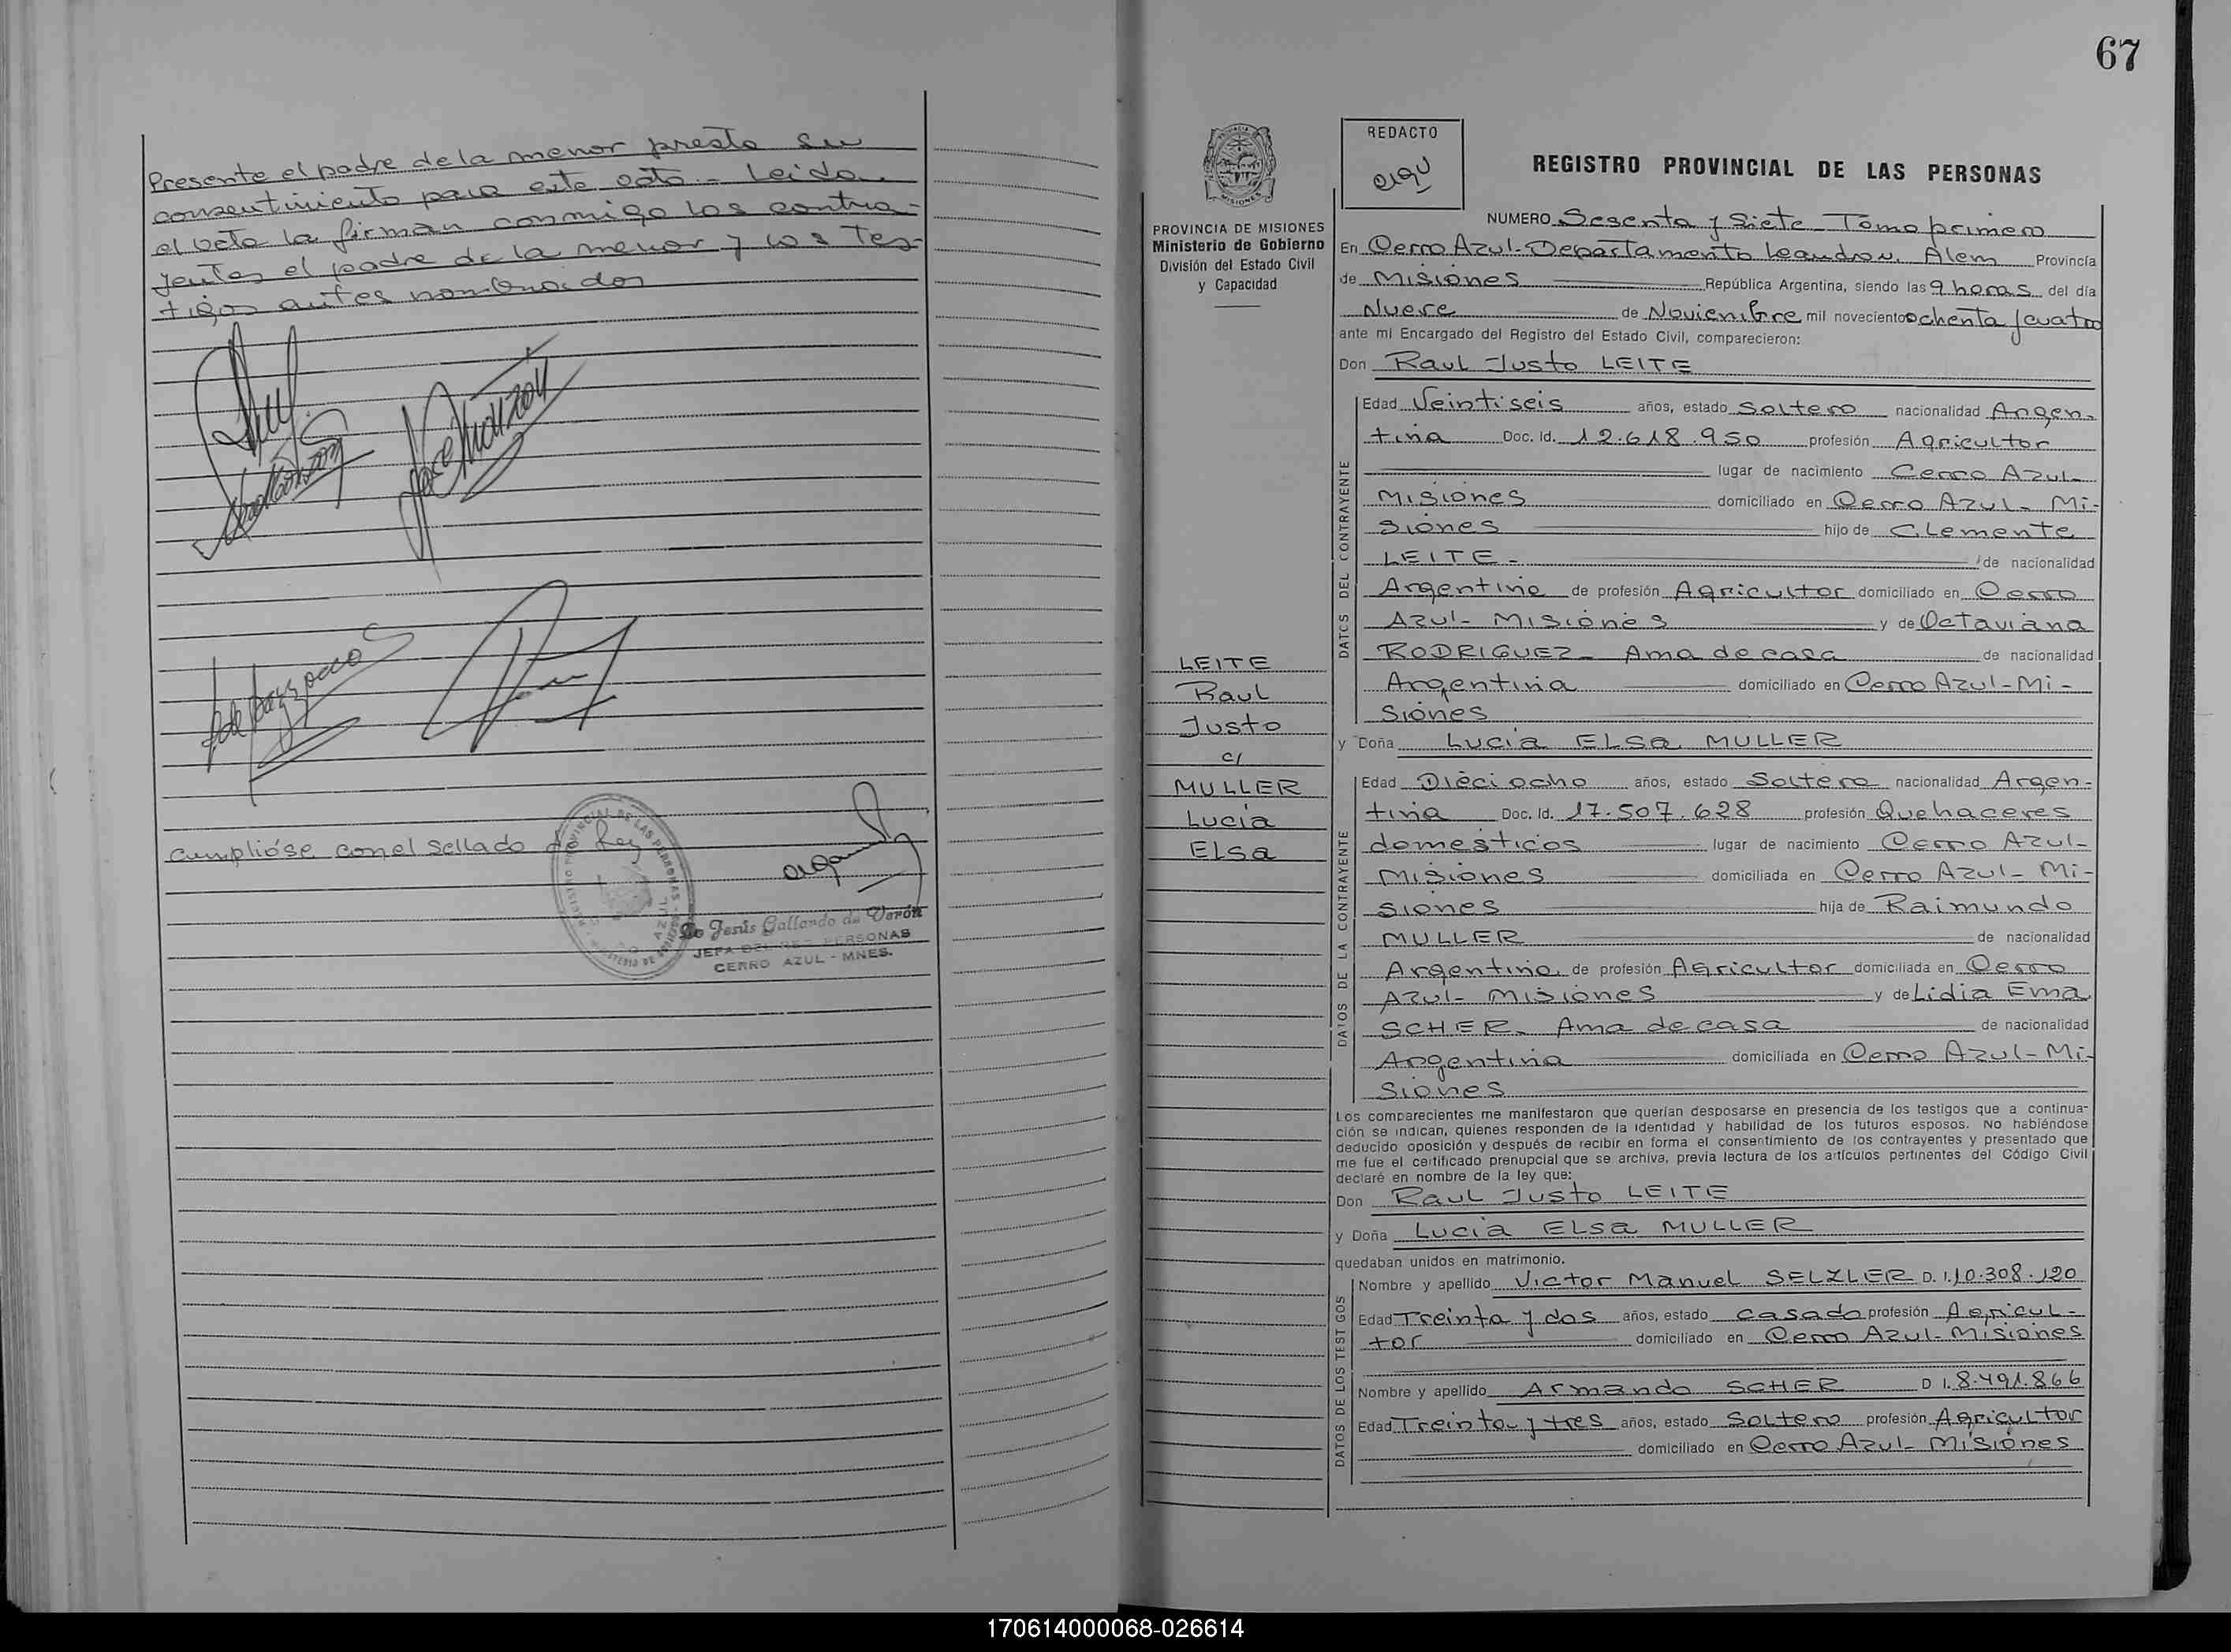 Presente el padre de la menor presta su
consentimiento para este acto.- Leida
el acta la firman conmigo los contra-
yentes el padre de la menor y los tes-
tigos antes nombrados
Cumplióse con el sellado de Ley
Jesús Gallardo de Varón
JEFA DEL REG. PERSONAS
CERRO AZUL - MNES.
67
PROVINCIA DE MISIONES
Ministerio de Gobierno
División del Estado Civil
y Capacidad
LEITE
Raul
Justo
c/
MULLER
Lucia
ELsa
REDACTO
REGISTRO PROVINCIAL DE LAS PERSONAS
NUMERO Sesenta y Siete - Tomo primero
En Cerro Azul-Departamento Leandro N. Alem Provincia
de Misiones República Argentina, siendo las 9 horas del día
Nueve de Noviembre mil novecientos ochenta y cuatro
ante mi Encargado del Registro del Estado Civil, comparecieron:
Don Raul Justo LEITE
DATOS DEL CONTRAYENTE
Edad Veintiseis años, estado Soltero nacionalidad Argen-
tina Doc. Id. 12.618.950 profesión Agricultor
lugar de nacimiento Cerro Azul-
Misiones domiciliado en Cerro Azul- Mi-
siones hijo de Clemente
LEITE - de nacionalidad
Argentina de profesión Agricultor domiciliado en Cerro
Azul- Misiones y de Octaviana
RODRIGUEZ- Ama de casa de nacionalidad
Argentina domiciliado en Cerro Azul-Mi-
siones
y Doña Lucia ELsa MULLER
DATOS DE LA CONTRAYENTE
Edad Dieciocho años, estado Soltera nacionalidad Argen-
tina Doc. Id. 17.507.628 profesión Quehaceres
domésticos lugar de nacimiento Cerro Azul-
Misiones domiciliada en Cerro Azul- Mi-
siones hija de Raimundo
MULLER de nacionalidad
Argentina de profesión Agricultor domiciliada en Cerro
Azul- Misiones y de Lidia Ema
SCHER- Ama de casa de nacionalidad
Argentina domiciliada en Cerro Azul-Mi-
siones
Los comparecientes me manifestaron que querían desposarse en presencia de los testigos que a continua-
ción se indican, quienes responden de la identidad y habilidad de los futuros esposos. No habiéndose
deducido oposición y después de recibir en forma el consentimiento de los contrayentes y presentado que
me fue el certificado prenupcial que se archiva, previa lectura de los artículos pertinentes del Código Civil
declaré en nombre de la ley que:
Don Raul Justo LEITE
y Doña Lucia ELsa MULLER
quedaban unidos en matrimonio.
DATOS DE LOS TESTIGOS
Nombre y apellido Victor Manuel SELZLER D.I.10.308.120
Edad Treinta y dos años, estado casado profesión Agricul-
tor domiciliado en Cerro Azul- Misiones
Nombre y apellido Armando SCHER D I.8.491.866
Edad Treinta y tres años, estado Soltero profesión Agricultor
domiciliado en Cerro Azul- Misiones
170614000068-026614